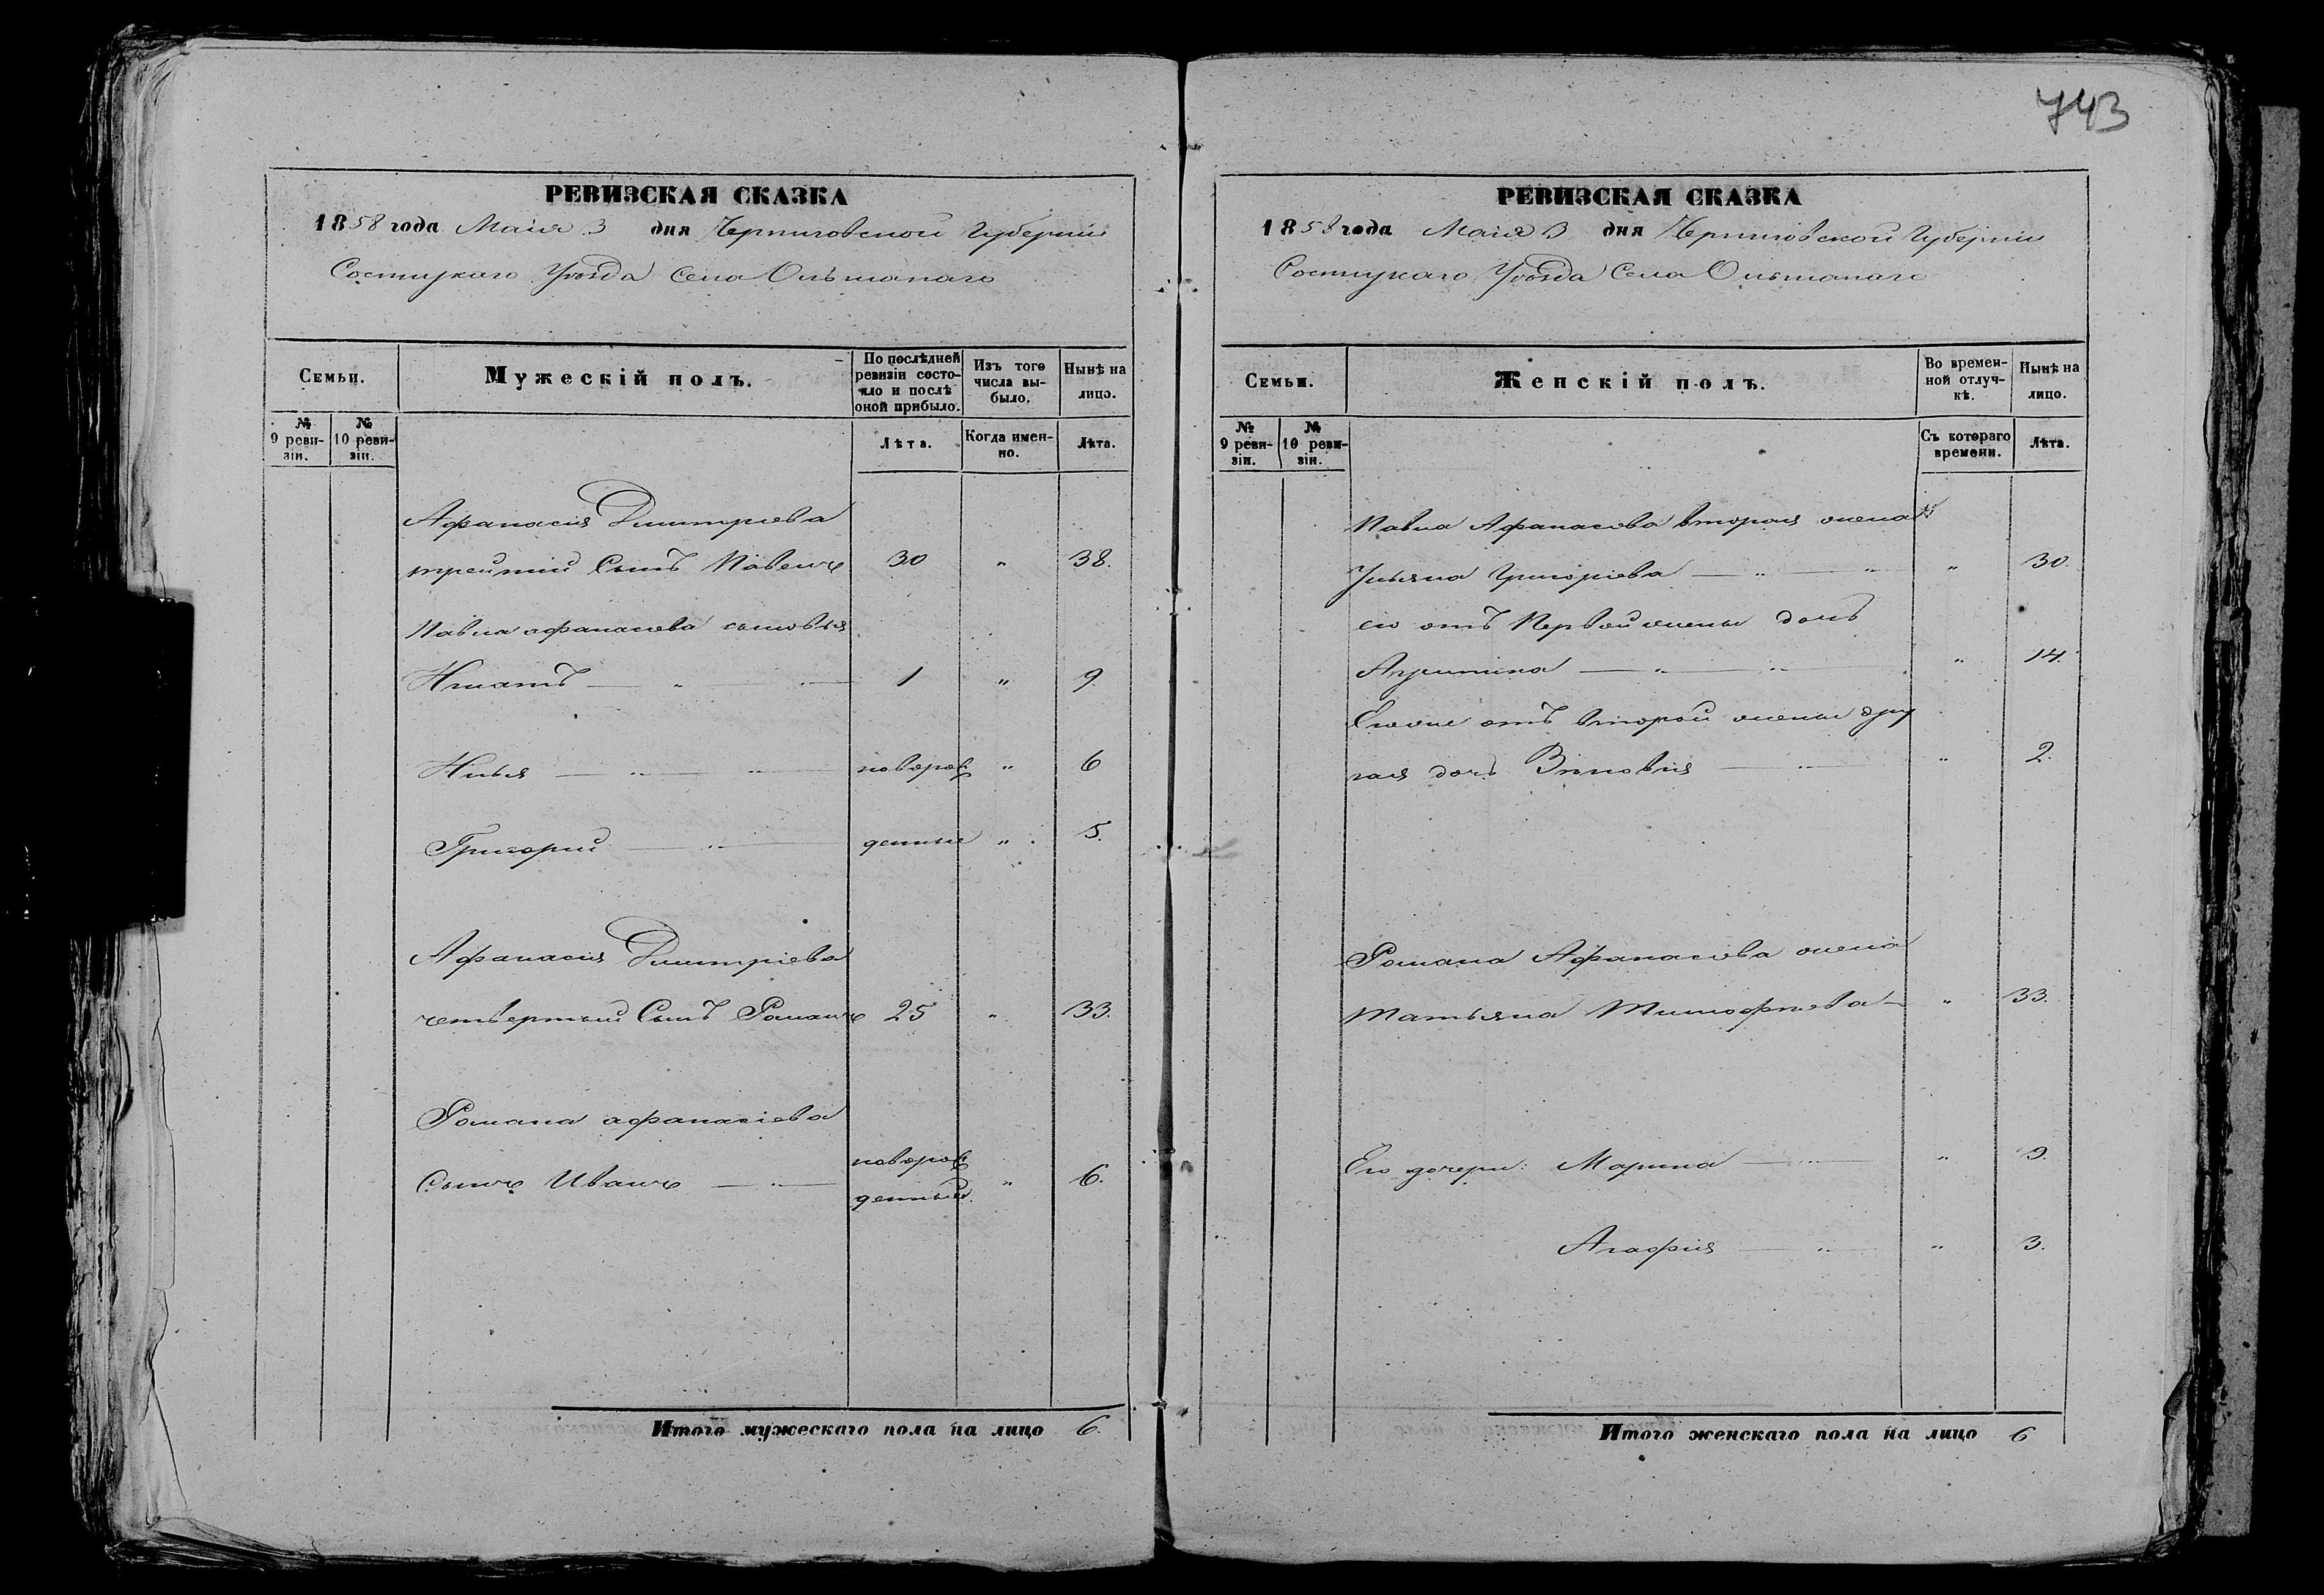 743
РЕВИЗСКАЯ СКАЗКА
1858 года Маія 3 дня Черниговской Губерніи
Сосницкаго Уѣзда Села Ольшанаго
Семьи.
Мужескій полъ.
По послѣдней ревизіи состояло и послѣ оной прибыло.
Изъ того числа выбыло.
Нынѣ на лицо.
№ 9 ревизіи.
№ 10 ревизіи.
Лѣта.
Когда именно.
Лѣта.
Афанасія Дмитріева
третий Сынъ Павелъ 30 " 38.
Павла афанасіева сыновья
Игнатъ — " — 1 " 9
Илья — " — " — новорож " 6
Григорий — " — денные " 5.
Афанасія Дмитріева
четвертый Сынъ Романъ 25 " 33.
Романа афанасіева
Сынъ Иванъ — " — новорож денный " 6.
Итого мужескаго пола на лицо 6.
РЕВИЗСКАЯ СКАЗКА
1858 года Маія 3 дня Черниговской Губерніи
Сосницкаго Уѣзда Села Ольшанаго
Семьи.
Женскій полъ.
Во временной отлучкѣ.
Нынѣ на лицо.
№ 9 ревизіи.
№ 10 ревизіи.
Съ котораго времени.
Лѣта.
Павла Афанасіева вторая жена
Ульяна Григоріева — " — " " 30.
его отъ Первой жены дочь
Агрипина — " — " " 14.
Егоже отъ второй жены дру
гая дочь — " — " 2.
Романа Афанасіева жена
Татьяна Тимофѣева — " 33.
Его дочери: Марина — " — " 9.
Агафия — " — " 3.
Итого женскаго пола на лицо 6